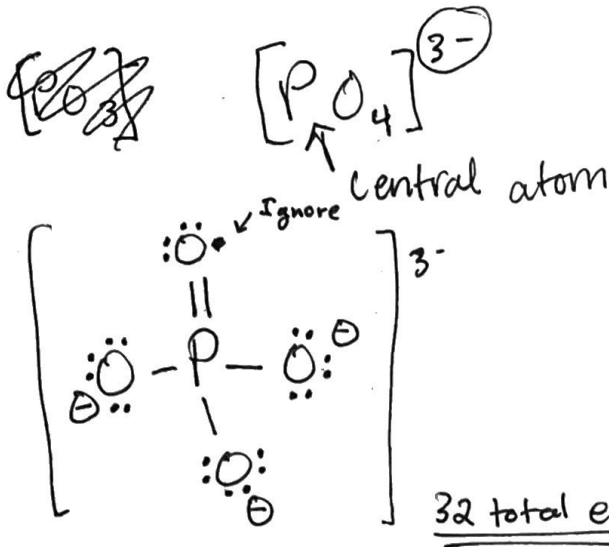 [PO₄]³⁻
Central atom
Ignore
O
3-
O - P - O ⊖
⊖
O
⊖
32 total e